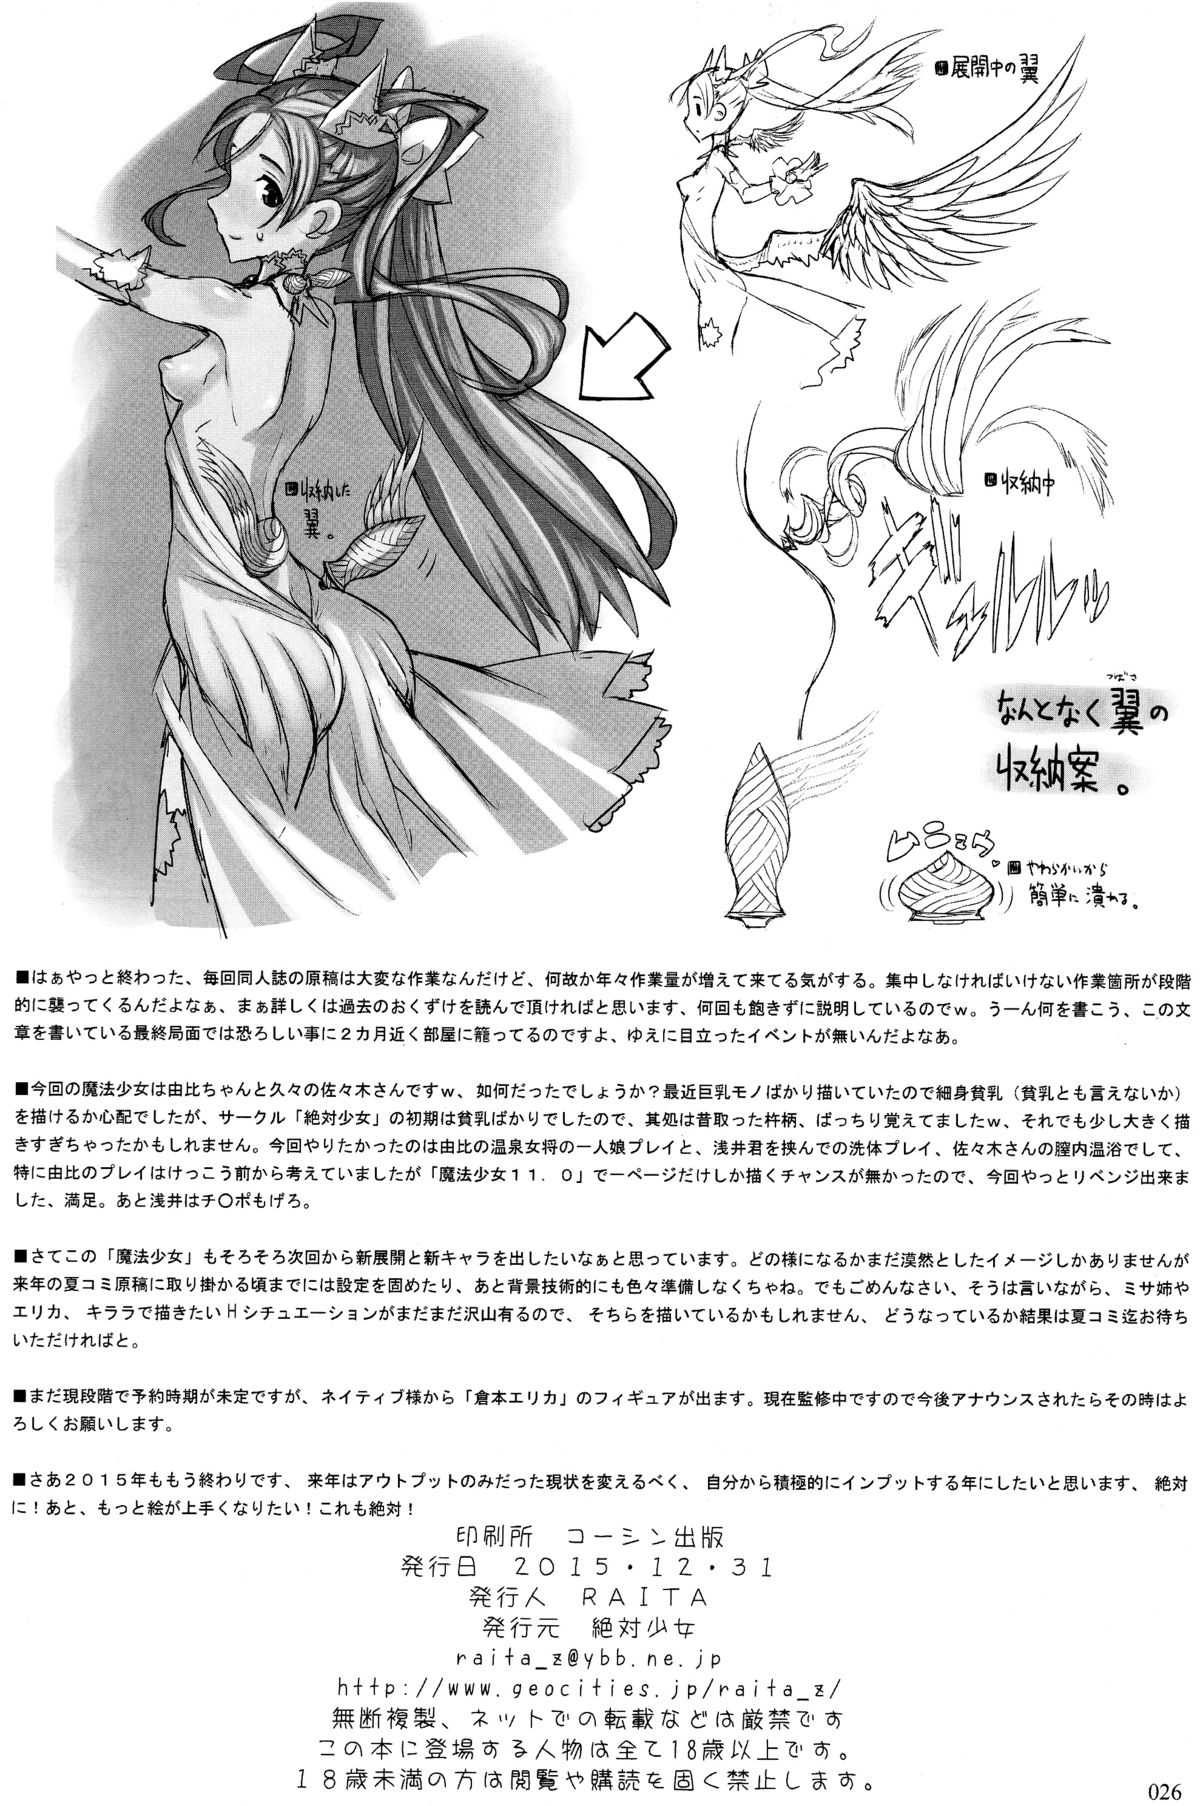 ■展開中の翼
■収納した
翼。
■収納中
ギュルルルッ
つばさ
なんとなく翼の
収納案。
ムニュウ
■やわらかいから
簡単に潰れる。
■はぁやっと終わった、毎回同人誌の原稿は大変な作業なんだけど、何故か年々作業量が増えて来てる気がする。集中しなければいけない作業箇所が段階
的に襲ってくるんだよなぁ、まぁ詳しくは過去のおくずけを読んで頂ければと思います、何回も飽きずに説明しているのでｗ。うーん何を書こう、この文
章を書いている最終局面では恐ろしい事に２カ月近く部屋に籠ってるのですよ、ゆえに目立ったイベントが無いんだよなあ。
■今回の魔法少女は由比ちゃんと久々の佐々木さんですｗ、如何だったでしょうか？最近巨乳モノばかり描いていたので細身貧乳（貧乳とも言えないか）
を描けるか心配でしたが、サークル「絶対少女」の初期は貧乳ばかりでしたので、其処は昔取った杵柄、ばっちり覚えてましたｗ、それでも少し大きく描
きすぎちゃったかもしれません。今回やりたかったのは由比の温泉女将の一人娘プレイと、浅井君を挟んでの洗体プレイ、佐々木さんの膣内温浴でして、
特に由比のプレイはけっこう前から考えていましたが「魔法少女１１．０」で一ページだけしか描くチャンスが無かったので、今回やっとリベンジ出来ま
した、満足。あと浅井はチ〇ポもげろ。
■さてこの「魔法少女」もそろそろ次回から新展開と新キャラを出したいなぁと思っています。どの様になるかまだ漠然としたイメージしかありませんが
来年の夏コミ原稿に取り掛かる頃までには設定を固めたり、あと背景技術的にも色々準備しなくちゃね。でもごめんなさい、そうは言いながら、ミサ姉や
エリカ、キララで描きたいＨシチュエーションがまだまだ沢山有るので、そちらを描いているかもしれません、どうなっているか結果は夏コミ迄お待ち
いただければと。
■まだ現段階で予約時期が未定ですが、ネイティブ様から「倉本エリカ」のフィギュアが出ます。現在監修中ですので今後アナウンスされたらその時はよ
ろしくお願いします。
■さあ２０１５年ももう終わりです、来年はアウトプットのみだった現状を変えるべく、自分から積極的にインプットする年にしたいと思います、絶対
に！あと、もっと絵が上手くなりたい！これも絶対！
印刷所　コーシン出版
発行日　２０１５・１２・３１
発行人　ＲＡＩＴＡ
発行元　絶対少女
raita_z@ybb.ne.jp
http://www.geocities.jp/raita_z/
無断複製、ネットでの転載などは厳禁です
この本に登場する人物は全て18歳以上です。
１８歳未満の方は閲覧や購読を固く禁止します。
026